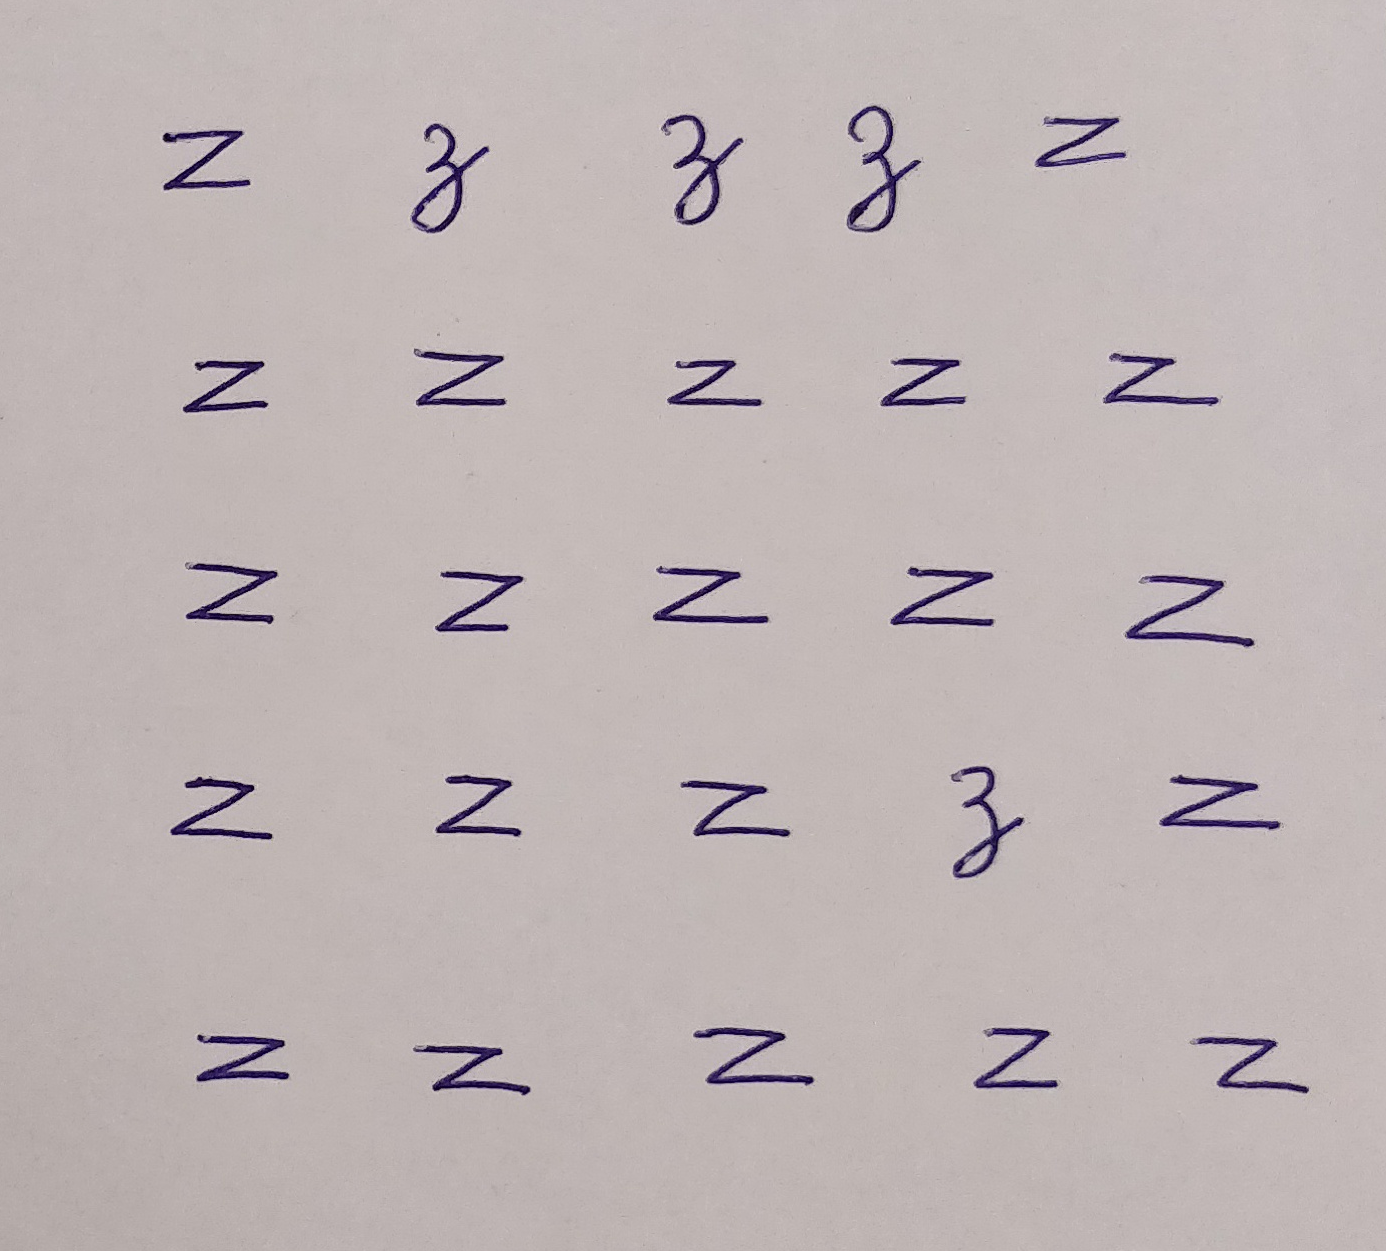 z z z z z
z z z z z
z z z z z
z z z z z
z z z z z